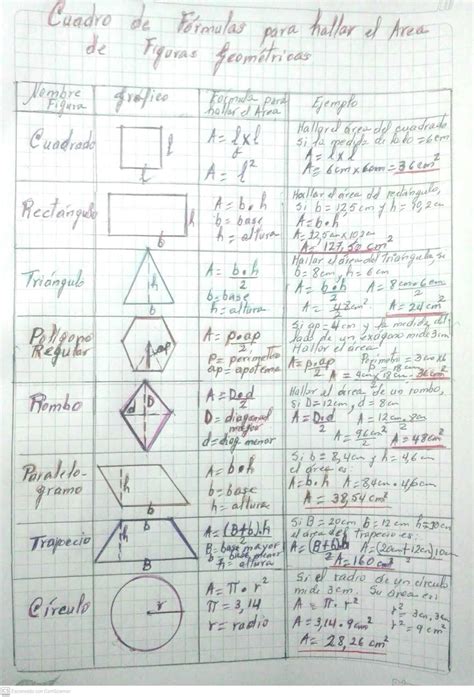 Cuadro de Fórmulas para hallar el Area
de Figuras Geométricas
Nombre Figura
Gráfico
Formula para hallar el Area
Ejemplo
Cuadrado
l
l
A = l x l
A = l²
Hallar el área del cuadrado
Si la medida de lado = 6cm
A = l x l
A = 6cm x 6cm = 36cm²
Rectángulo
h
b
A = b•h
b = base
h = altura
Hallar el área del rectángulo,
Si b = 12,5cm y h = 10,2cm
A = b•h
A = 12,5cm x 10,2cm
A = 127,50 cm²
Triángulo
h
b
A = b•h
2
b = base
h = altura
Hallar el área del Triángulo si
b = 8cm, h = 6cm
A = b•h
2
A = 8cm•6cm
2
A = 48cm²
2
A = 24cm²
Polígono
Regular
ap
A = p•ap
2
P = perímetro
ap = apotema
Si ap = 4cm y la medida del
lado de un exágono mide 3cm
Hallar el área
A = p•ap
2
Perímetro = 3cm x 6
P = 18cm
A = 4cm•18cm
2
36cm²
Rombo
d
D
A = D•d
2
D = diagonal
mayor
d = diag. menor
Hallar el área de un rombo,
Si D = 12cm, d = 8cm
A = D•d
2
A = 12cm•8cm
2
A = 96cm²
2
A = 48cm²
Paralelo-
gramo
h
b
A = b•h
b = base
h = altura
Si b = 8,4cm y h = 4,6cm
el área es:
A = b•h
A = 8,4cm•4,6cm
A = 38,54cm²
Trapecio
b
h
B
A = (B+b)•h
2
B = base mayor
b = base menor
h = altura
Si B = 20cm, b = 12cm h = 10cm
el área del Trapecio es:
A = (B+b)h
2
A = (20cm+12cm)•10cm
2
A = 160cm²
Círculo
r
A = π•r²
π = 3,14
r = radio
Si el radio de un círculo
mide 3cm. Su área es:
A = π•r²
r² = 3cm•3cm
r² = 9cm²
A = 3,14•9cm²
A = 28,26cm²
Escaneado con CamScanner